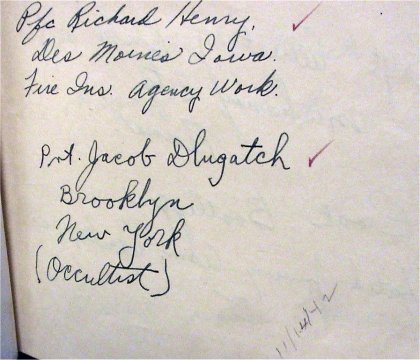 Pfc Richard Henry,
Des Moines Iowa.
Fire Ins. Agency Work.
Pvt. Jacob Dlugatch
Brooklyn
New York
(Occultist)
11/14/42